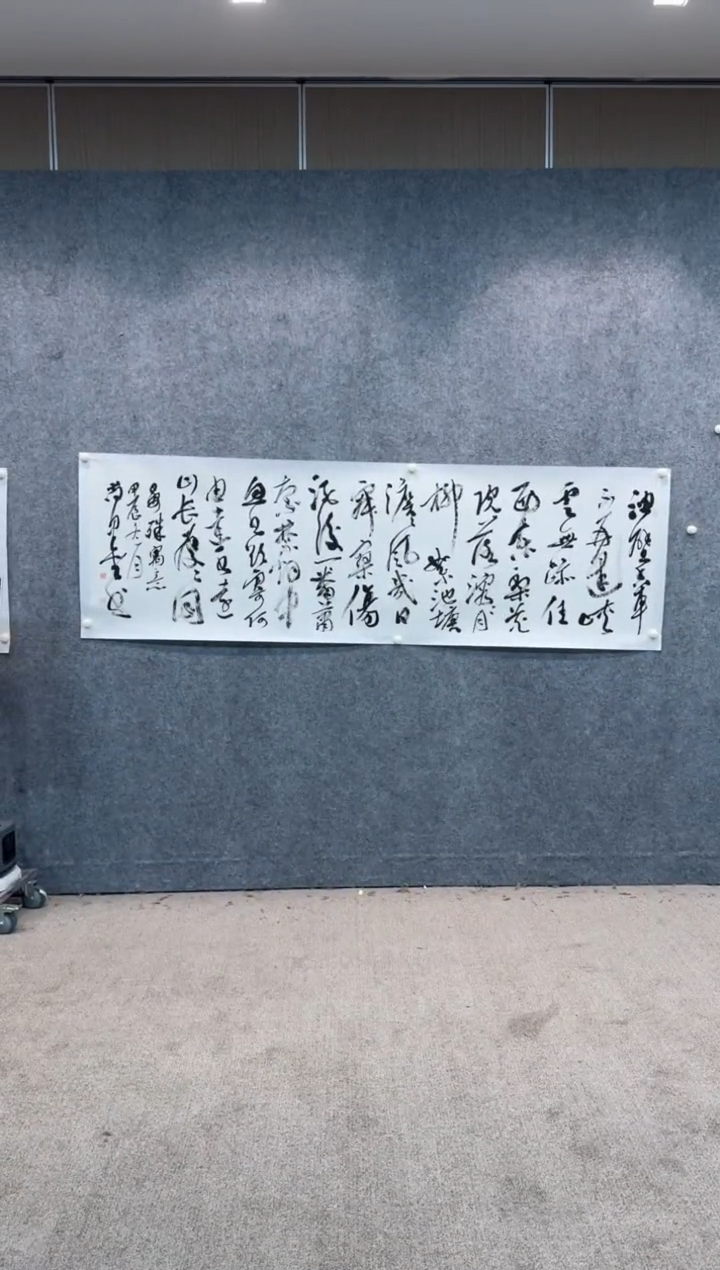 油壁香車
不再逢峡
雲無跡任
西東梨花
院落溶〻月
柳絮池塘
澹〻風幾日
寂寥傷
酒後一番蕭
索禁烟中
魚書欲寄何
由達水遠
山長處〻同
晏殊寓意
甲辰六月